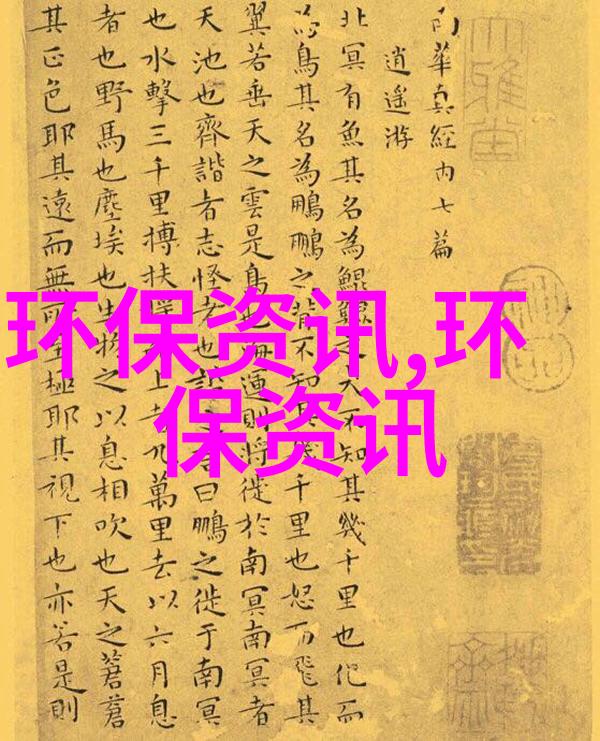 环保资讯,环
保资讯
南華真經内七篇
逍遙游
北冥有魚其名為鯤鯤之大不知其幾千里也化而
為鳥其名為鵬鵬之背不知其幾千里也怒而飛其
翼若垂天之雲是鳥也海運則將徙於南冥南冥者
天池也齊諧者志怪者也諧之言曰鵬之徙于南冥
也水擊三千里搏扶搖而上者九萬里去以六月息
者也野馬也塵埃也生物之以息相吹也天之蒼蒼
其正色耶其遠而無所至極耶其視下也亦若是則